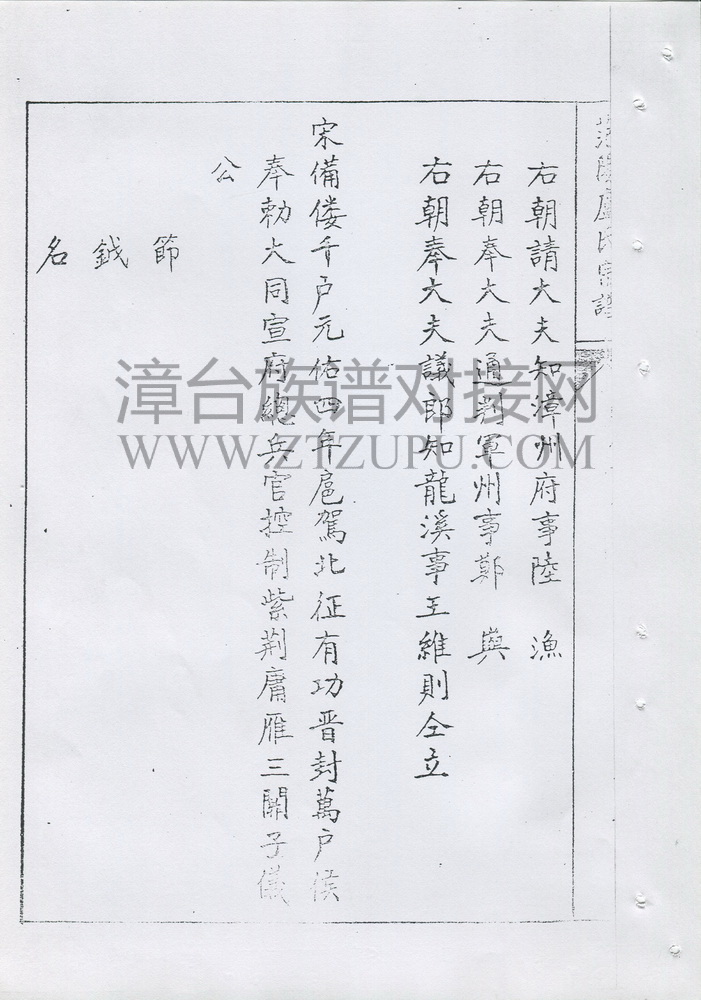 范陽盧氏宗譜
右朝請大夫知漳州府事陸 漁
右朝奉大夫通判軍州事鄭 與
右朝奉大夫議郎知龍溪事王維則仝立
宋備倭千户元佑四年扈駕北征有功晋封萬户侯
奉勅大同宣府總兵官控制紫荆庸雁三關子儀
公
節
鉞
名
漳台族谱对接网
WWW.ZTZUPU.COM